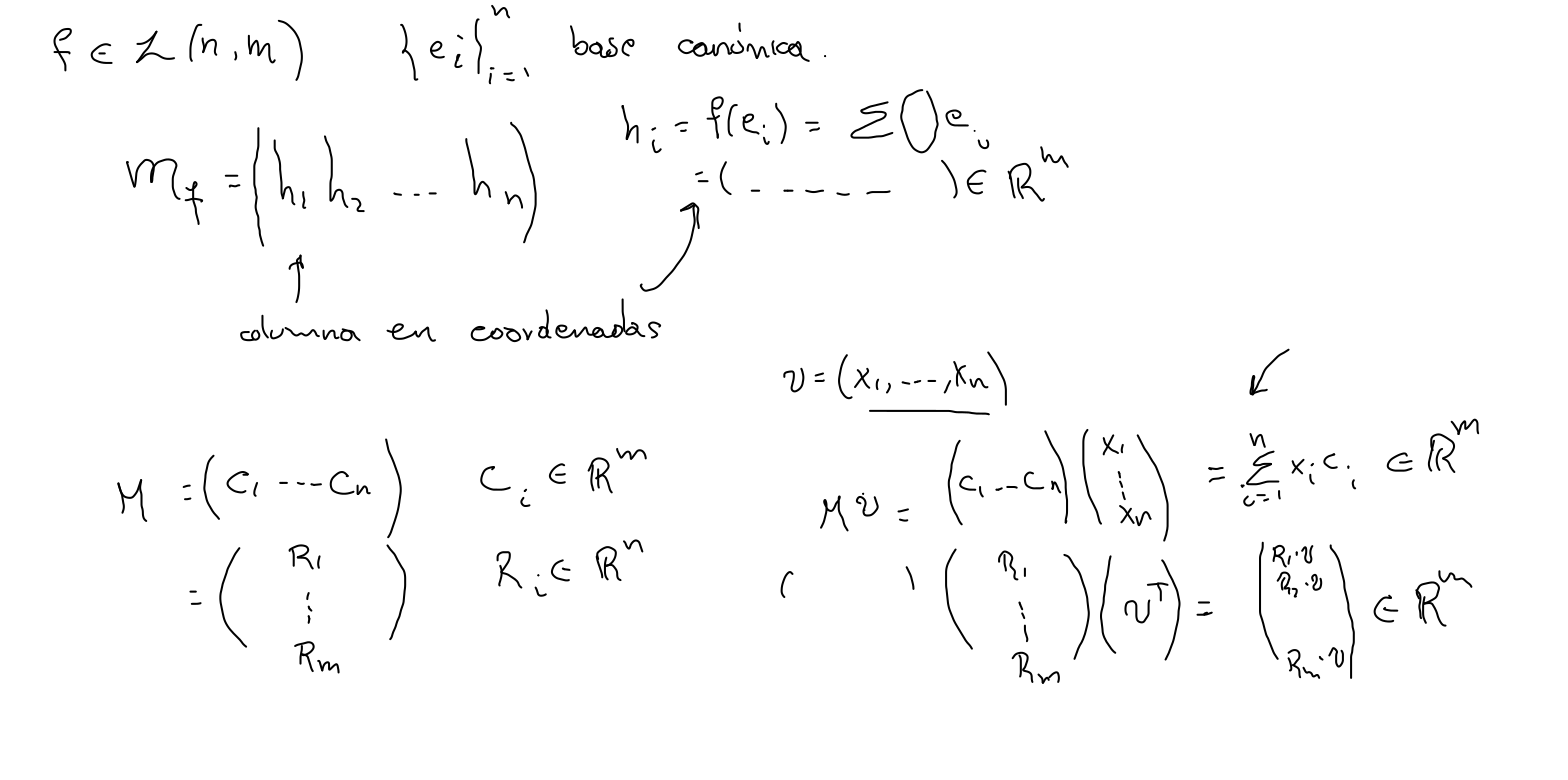 f ∈ L(n,m) {e_i}_{i=1}^n base canónica.
h_i = f(e_i) = Σ O e_i
m_f = (h_1 h_2 ... h_n) = ( - - - - - ) ∈ ℝ^m
columna en coordenadas
v = (x_1, ..., x_n)
M = (c_1 ... c_n) c_i ∈ ℝ^m
= (R_1 ⋮ R_m) R_i ∈ ℝ^n
M v = (c_1 ... c_n) (x_1 ⋮ x_n) = Σ_{i=1}^n x_i c_i ∈ ℝ^m
( ) (R_1 ⋮ R_m) (v^T) = (R_1·v R_2·v R_m·v) ∈ ℝ^m